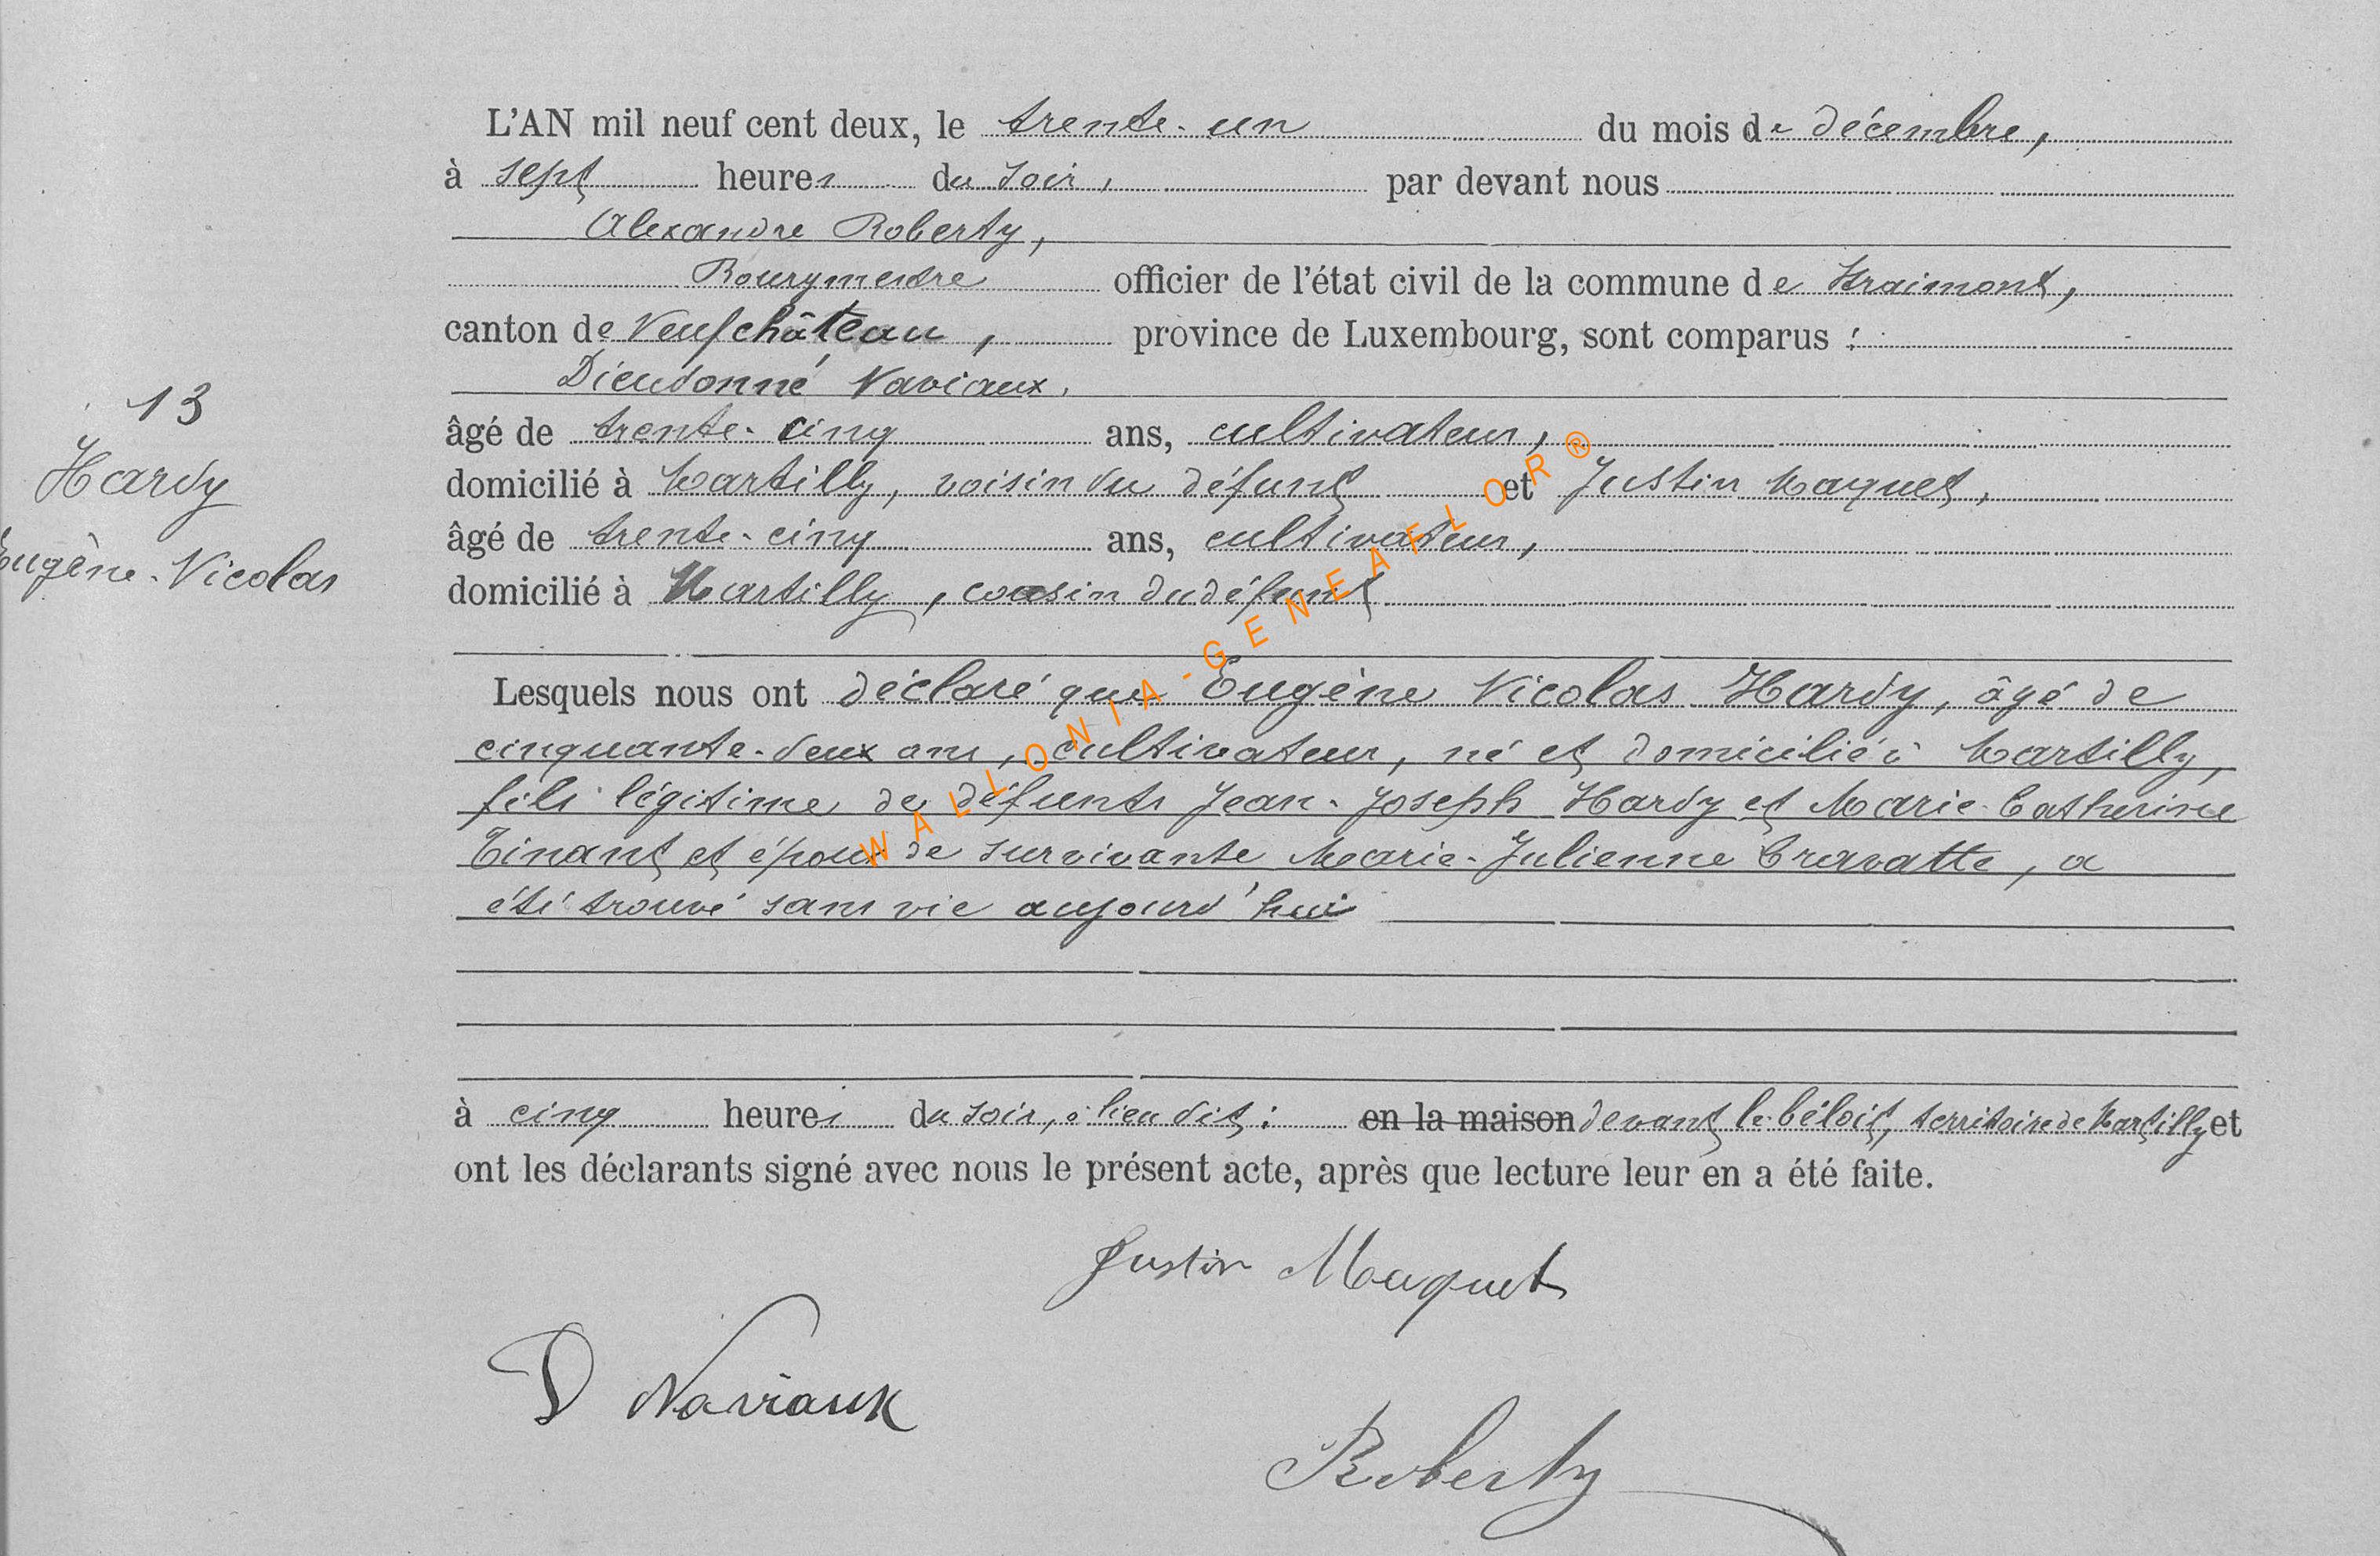 L'AN mil neuf cent deux, le trente-un du mois de décembre,
à sept heures du soir, par devant nous
Alexandre Roberty,
Bourgmestre officier de l'état civil de la commune de Straimont,
canton de Neufchâteau, province de Luxembourg, sont comparus :
Dieudonné Naviaux,
13
âgé de trente-cinq ans, cultivateur,
Hardy
domicilié à Martilly, voisin du défunt et Justin Maquet,
âgé de trente-cinq ans, cultivateur,
Eugène-Nicolas
domicilié à Martilly, cousin du défunt
Lesquels nous ont déclaré que Eugène Nicolas Hardy, âgé de
cinquante-deux ans, cultivateur, né et domicilié à Martilly,
fils légitime de défunts Jean-Joseph Hardy et Marie-Catherine
Tinant et époux de survivante Marie-Julienne Cravatte, a
été trouvé sans vie aujourd'hui
à cinq heures du soir, à lieu dit : en la maison devant le béloit, territoire de Martilly et
ont les déclarants signé avec nous le présent acte, après que lecture leur en a été faite.
Justin Maquet
D Naviaux
Roberty
WALLONIA-GENEAFLOR®